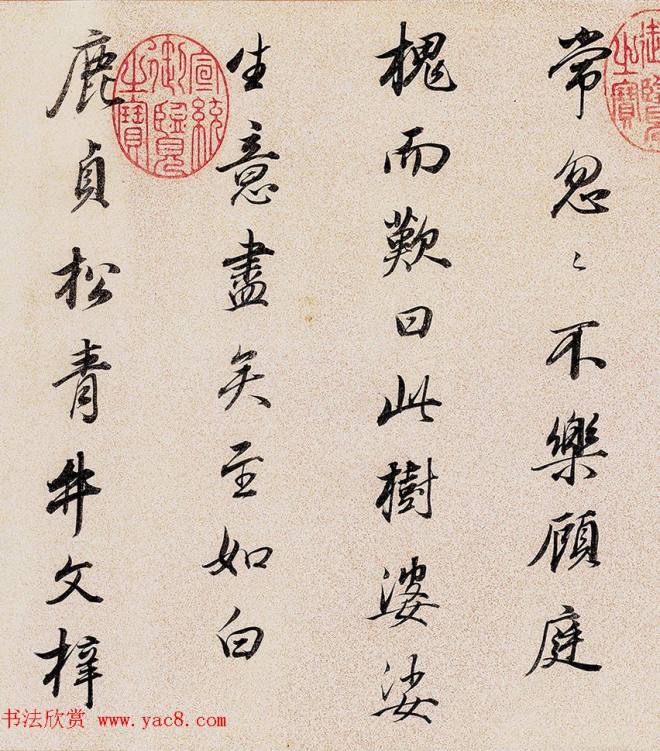 御覽之寶
常忽〻不樂顧庭
槐而歎曰此樹婆娑
生意盡矣至如白
宣統御覽之寶
鹿貞松青牛文梓
书法欣赏 www.yac8.com